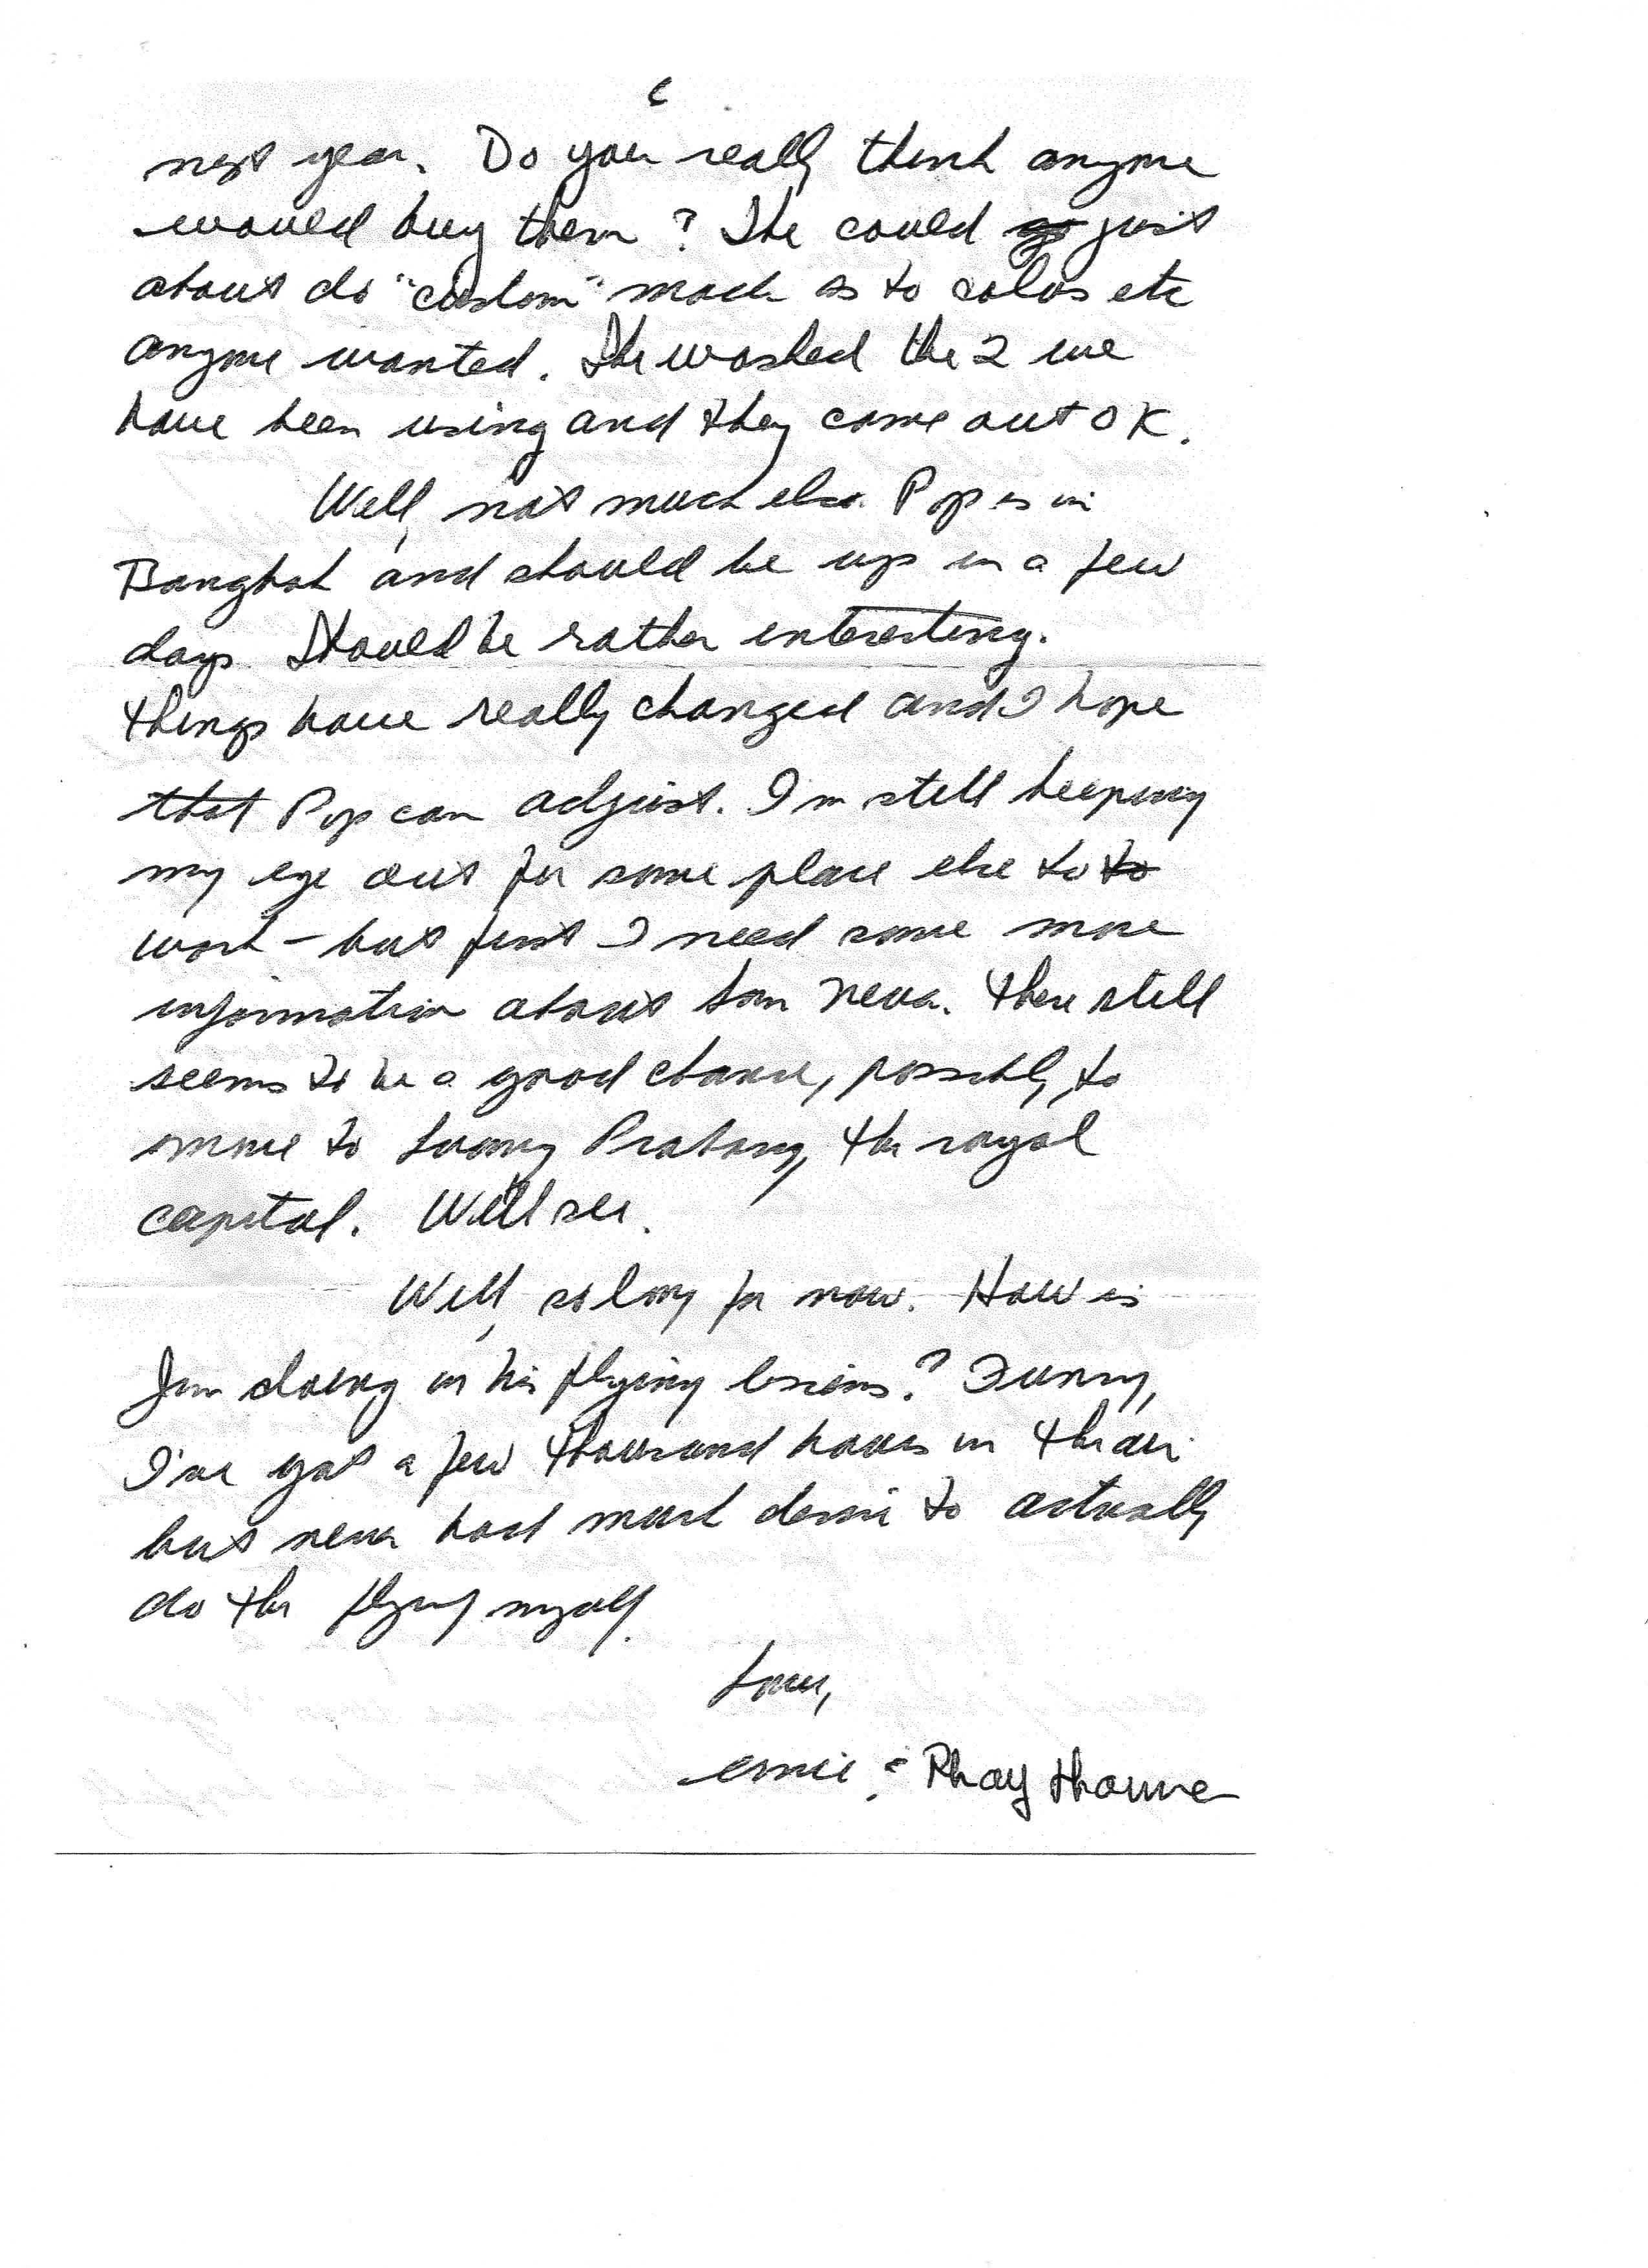 6
next year. Do you really think anyone
would buy them? She could just
about do "custom" made as to colors etc
anyone wanted. She washed the 2 we
have been using and they come out OK.
Well, not much else. Pop is in
Bangkok and should be up in a few
days. Should be rather interesting.
things have really changed and I hope
that Pop can adjust. I'm still keeping
my eye out for some place else to to
work - but first I need some more
information about Sam Neua. There still
seems to be a good chance, possibly, to
move to Luang Prabang, the royal
capital. We'll see.
Well, so long for now. How is
Jim doing in his flying lessons? Funny,
I've got a few thousand hours in the air
but never had much desire to actually
do the flying myself.
Love,
Ernie & Phay Thoune